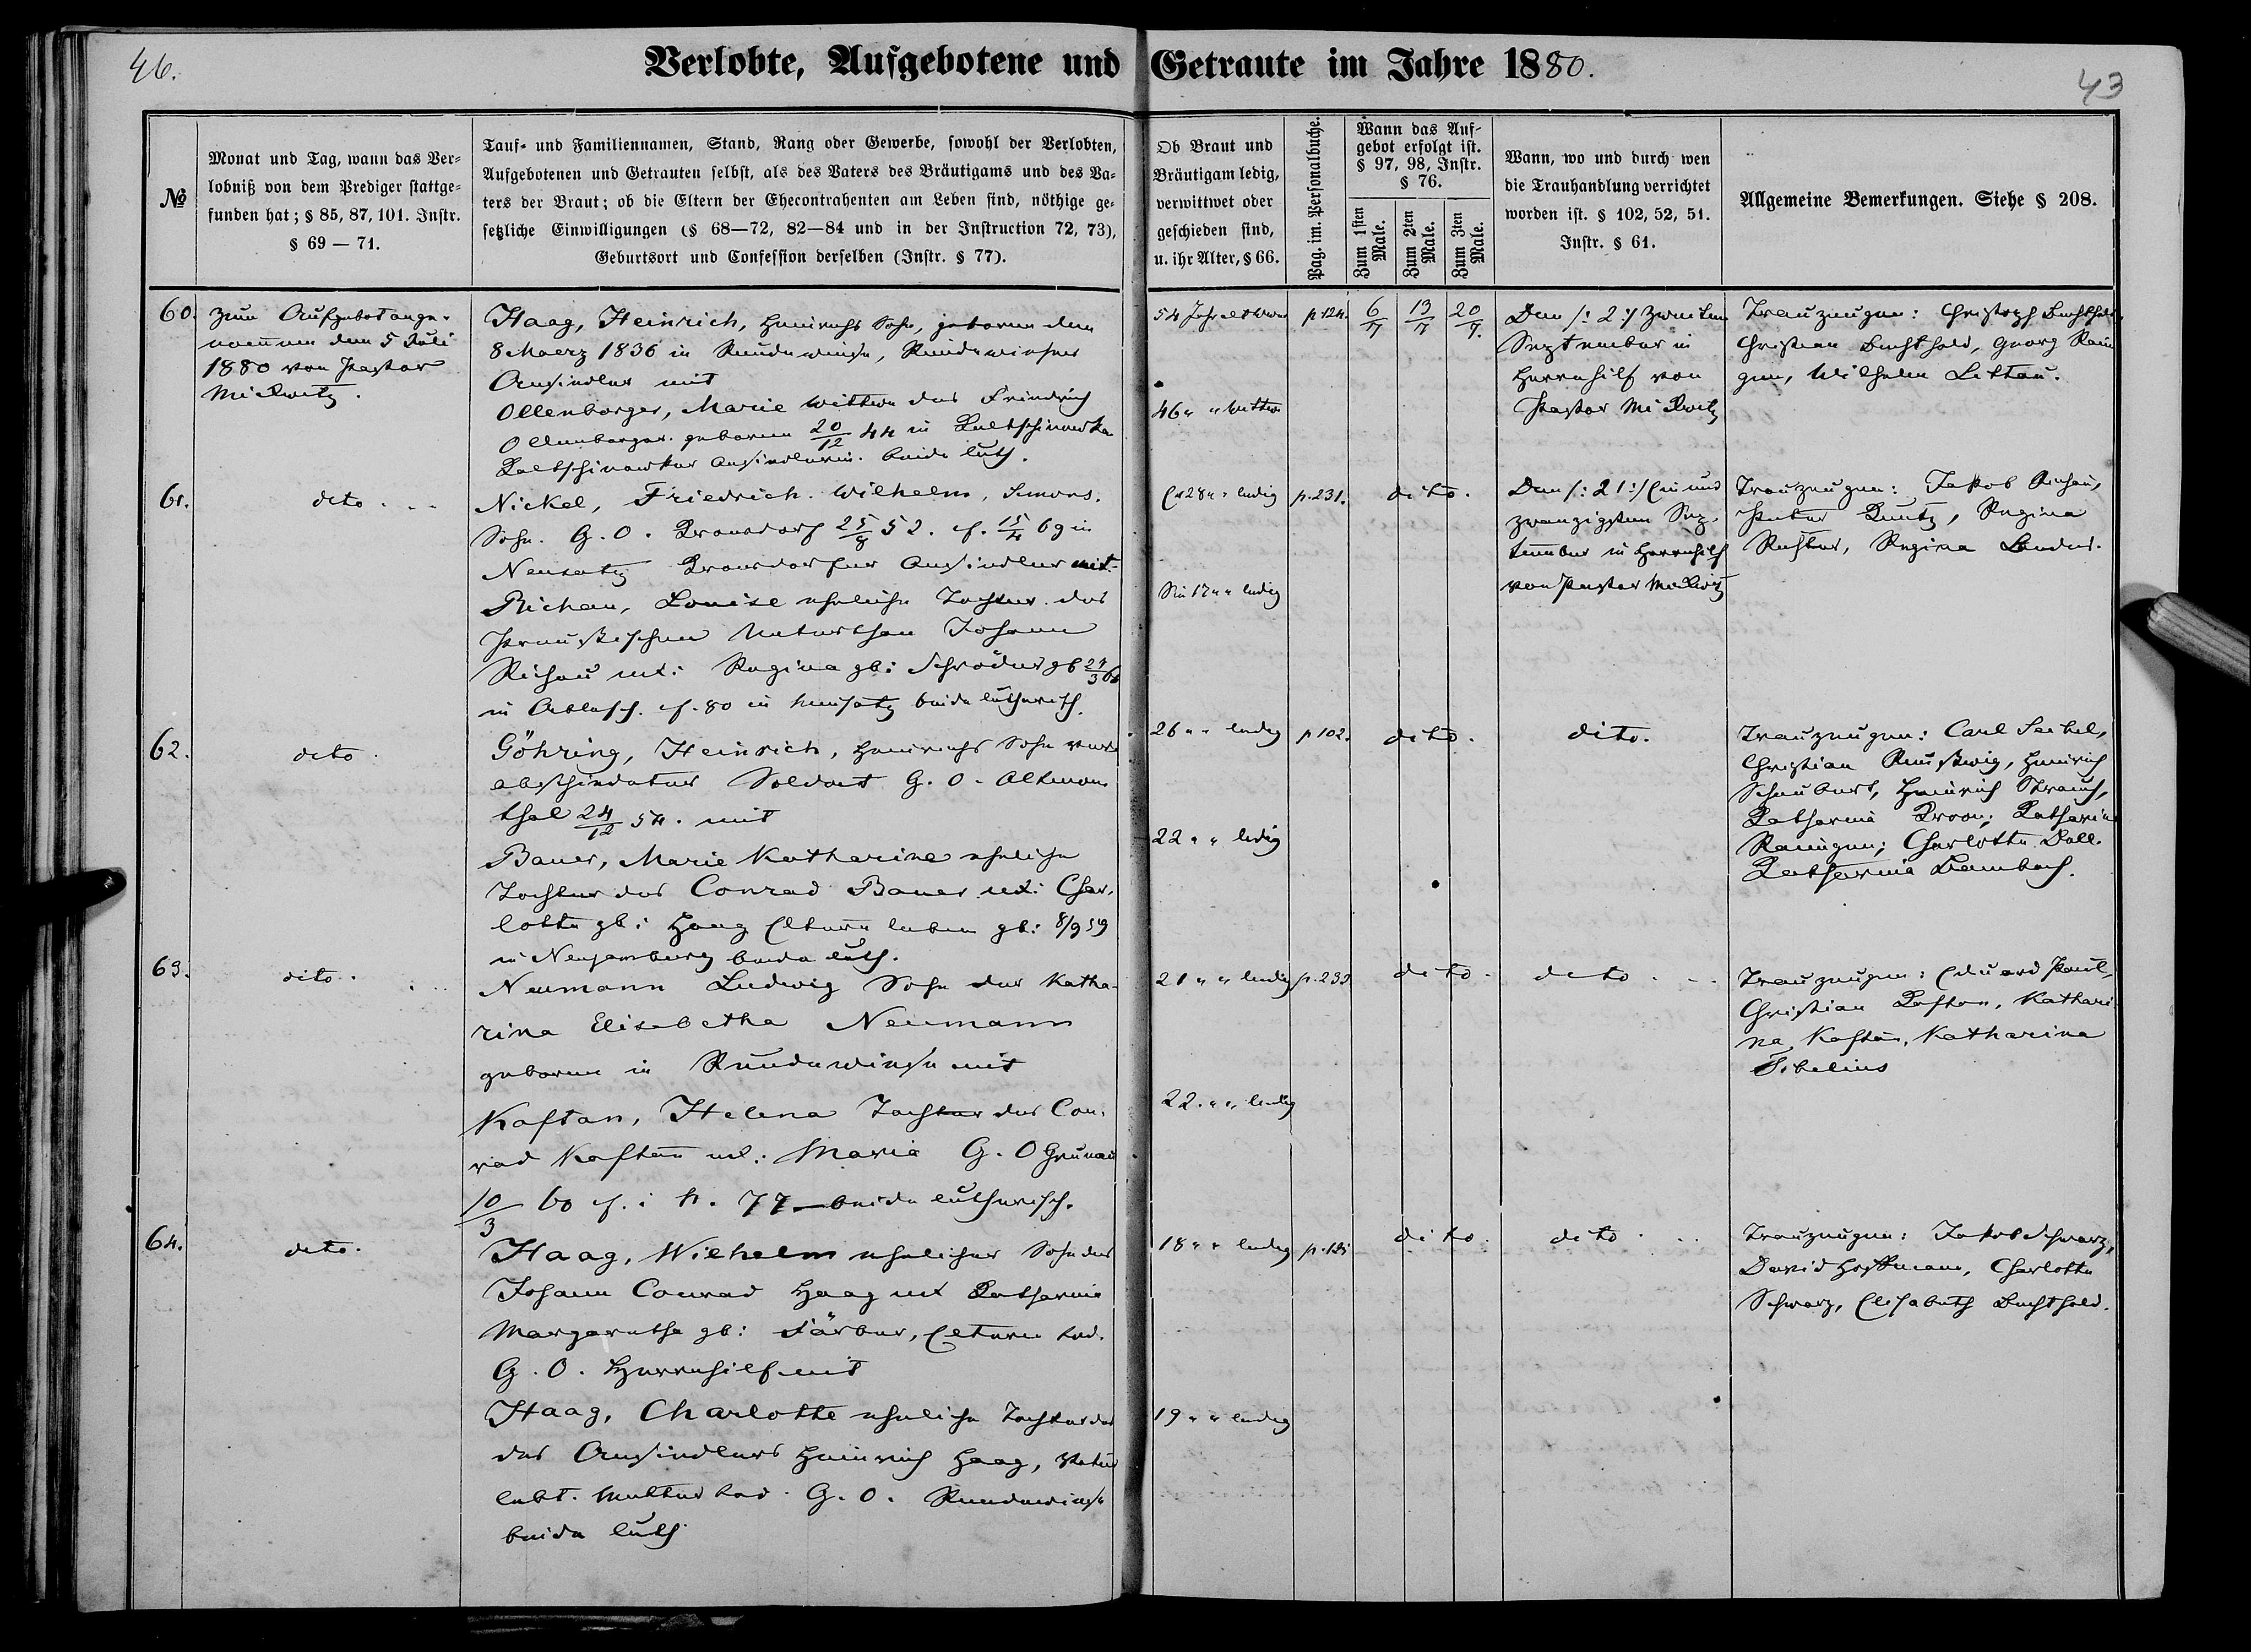 46.
Verlobte, Aufgebotene und Getraute im Jahre 1880.
43
№
Monat und Tag, wann das Ver-
lobniß von dem Prediger stattge-
funden hat; § 85, 87, 101. Instr.
§ 69 — 71.
Tauf- und Familiennamen, Stand, Rang oder Gewerbe, sowohl der Verlobten,
Aufgebotenen und Getrauten selbst, als des Vaters des Bräutigams und des Va-
ters der Braut; ob die Eltern der Ehecontrahenten am Leben sind, nöthige ge-
setzliche Einwilligungen (§ 68—72, 82—84 und in der Instruction 72, 73),
Geburtsort und Confession derselben (Instr. § 77).
Ob Braut und
Bräutigam ledig,
verwittwet oder
geschieden sind,
u. ihr Alter, § 66.
Pag. im. Personalbuche.
Wann das Auf-
gebot erfolgt ist.
§ 97, 98, Instr.
§ 76.
Zum 1sten Male.
Zum 2ten Male.
Zum 3ten Male.
Wann, wo und durch wen
die Trauhandlung verrichtet
worden ist. § 102, 52, 51.
Instr. § 61.
Allgemeine Bemerkungen. Siehe § 208.
60.
zum Aufgebot ange-
nommen den 5 Juli
1880 von Pastor
Mickwitz.
Haag, Heinrich, Heinrichs Sohn, geboren den
8 Maerz 1836 in Rundewiese, Rundewieser
Ansiedler mit
Ollenborger, Marie Wittwe des Friedrich
Ollenborger. geboren 20/12 44 in Kaltschinowka
Kaltschinowkaer Ansiedlerin. beide luth.
54 Jahr
46 " " Wittwe
p 124.
6/7
13/7
20/7.
Den /: 2 :/ zweiten
September in
Herrnhilf von
Pastor Mickwitz
Trauzeugen: Christoph Bechthold,
Christian Bechthold, Georg Rein
gen, Wilhelm Littau.
61.
dito . . .
Nickel, Friedrich Wilhelm, Simons.
Sohn. G. O. Kronsdorf 25/8 52. cf. 15/4 69 in
Neusatz Kronsdorfer Ansiedler mit
Richau, Louise eheliche Tochter des
Preußischen Unterthan Johann
Richau ux: Regina gb: Schröder gb 24/3
in cf. 80 in Neusatz beide lutherisch.
Er 28 " " ledig
Sie 17 " " ledig
p. 231.
dito.
Den /: 21 :/ Ein und
zwanzigsten Sep-
tember in Herrnhilf
von Pastor Mickwitz
Trauzeugen: Jakob Richau,
Peter Kuntz, Regina
Richter, Regina Bender.
62.
dito
Göhring, Heinrich, Heinrichs Sohn
abschiedeter Soldat G. O. Altmon
thal 24/12 54. mit
Bauer, Marie Katharine eheliche
Tochter des Conrad Bauer ux: Char-
lotte gb: Haag Eltern leben gb: 8/9 59
in Neujamburg beide luth.
26 " " ledig
22 " " ledig
p 102.
dito.
dito.
Trauzeugen: Carl Seibel,
Christian Heinrich
Schaubert, Heinrich Strauch,
Katharina Kroon; Katharina
Reingen; Charlotte Doll.
Katharina Dambach.
63.
dito.
Neumann Ludwig Sohn der Katha-
rina Elisabetha Neumann
geboren in Rundewiese mit
Kaftan, Helena Tochter des Con-
rad Kaftan ux: Maria G. O Grunau
10/3 60 cf. : 77 beide lutherisch.
21 " " ledig
22. " " ledig
p. 233
dito.
dito . . .
Trauzeugen: Eduard Paul,
Christian Kaftan, Kathari
na Kaftan, Katharina
Sibelius
64.
dito.
Haag, Wilhelm ehelicher Sohn des
Johann Conrad Haag ux Katharina
Margaretha gb: Färber, Eltern tod.
G. O. Herrnhilf mit
Haag, Charlotte eheliche Tochter des
des Ansiedlers Heinrich Haag, Vater
lebt. Mutter tod. G. O. Rundewiese
beide luth
18 " " ledig
19 " " ledig
dito.
dito . . .
Trauzeugen: Jakob Schwarz,
David Hoffmann, Charlotte
Schwarz, Elisabeth Bechthold.